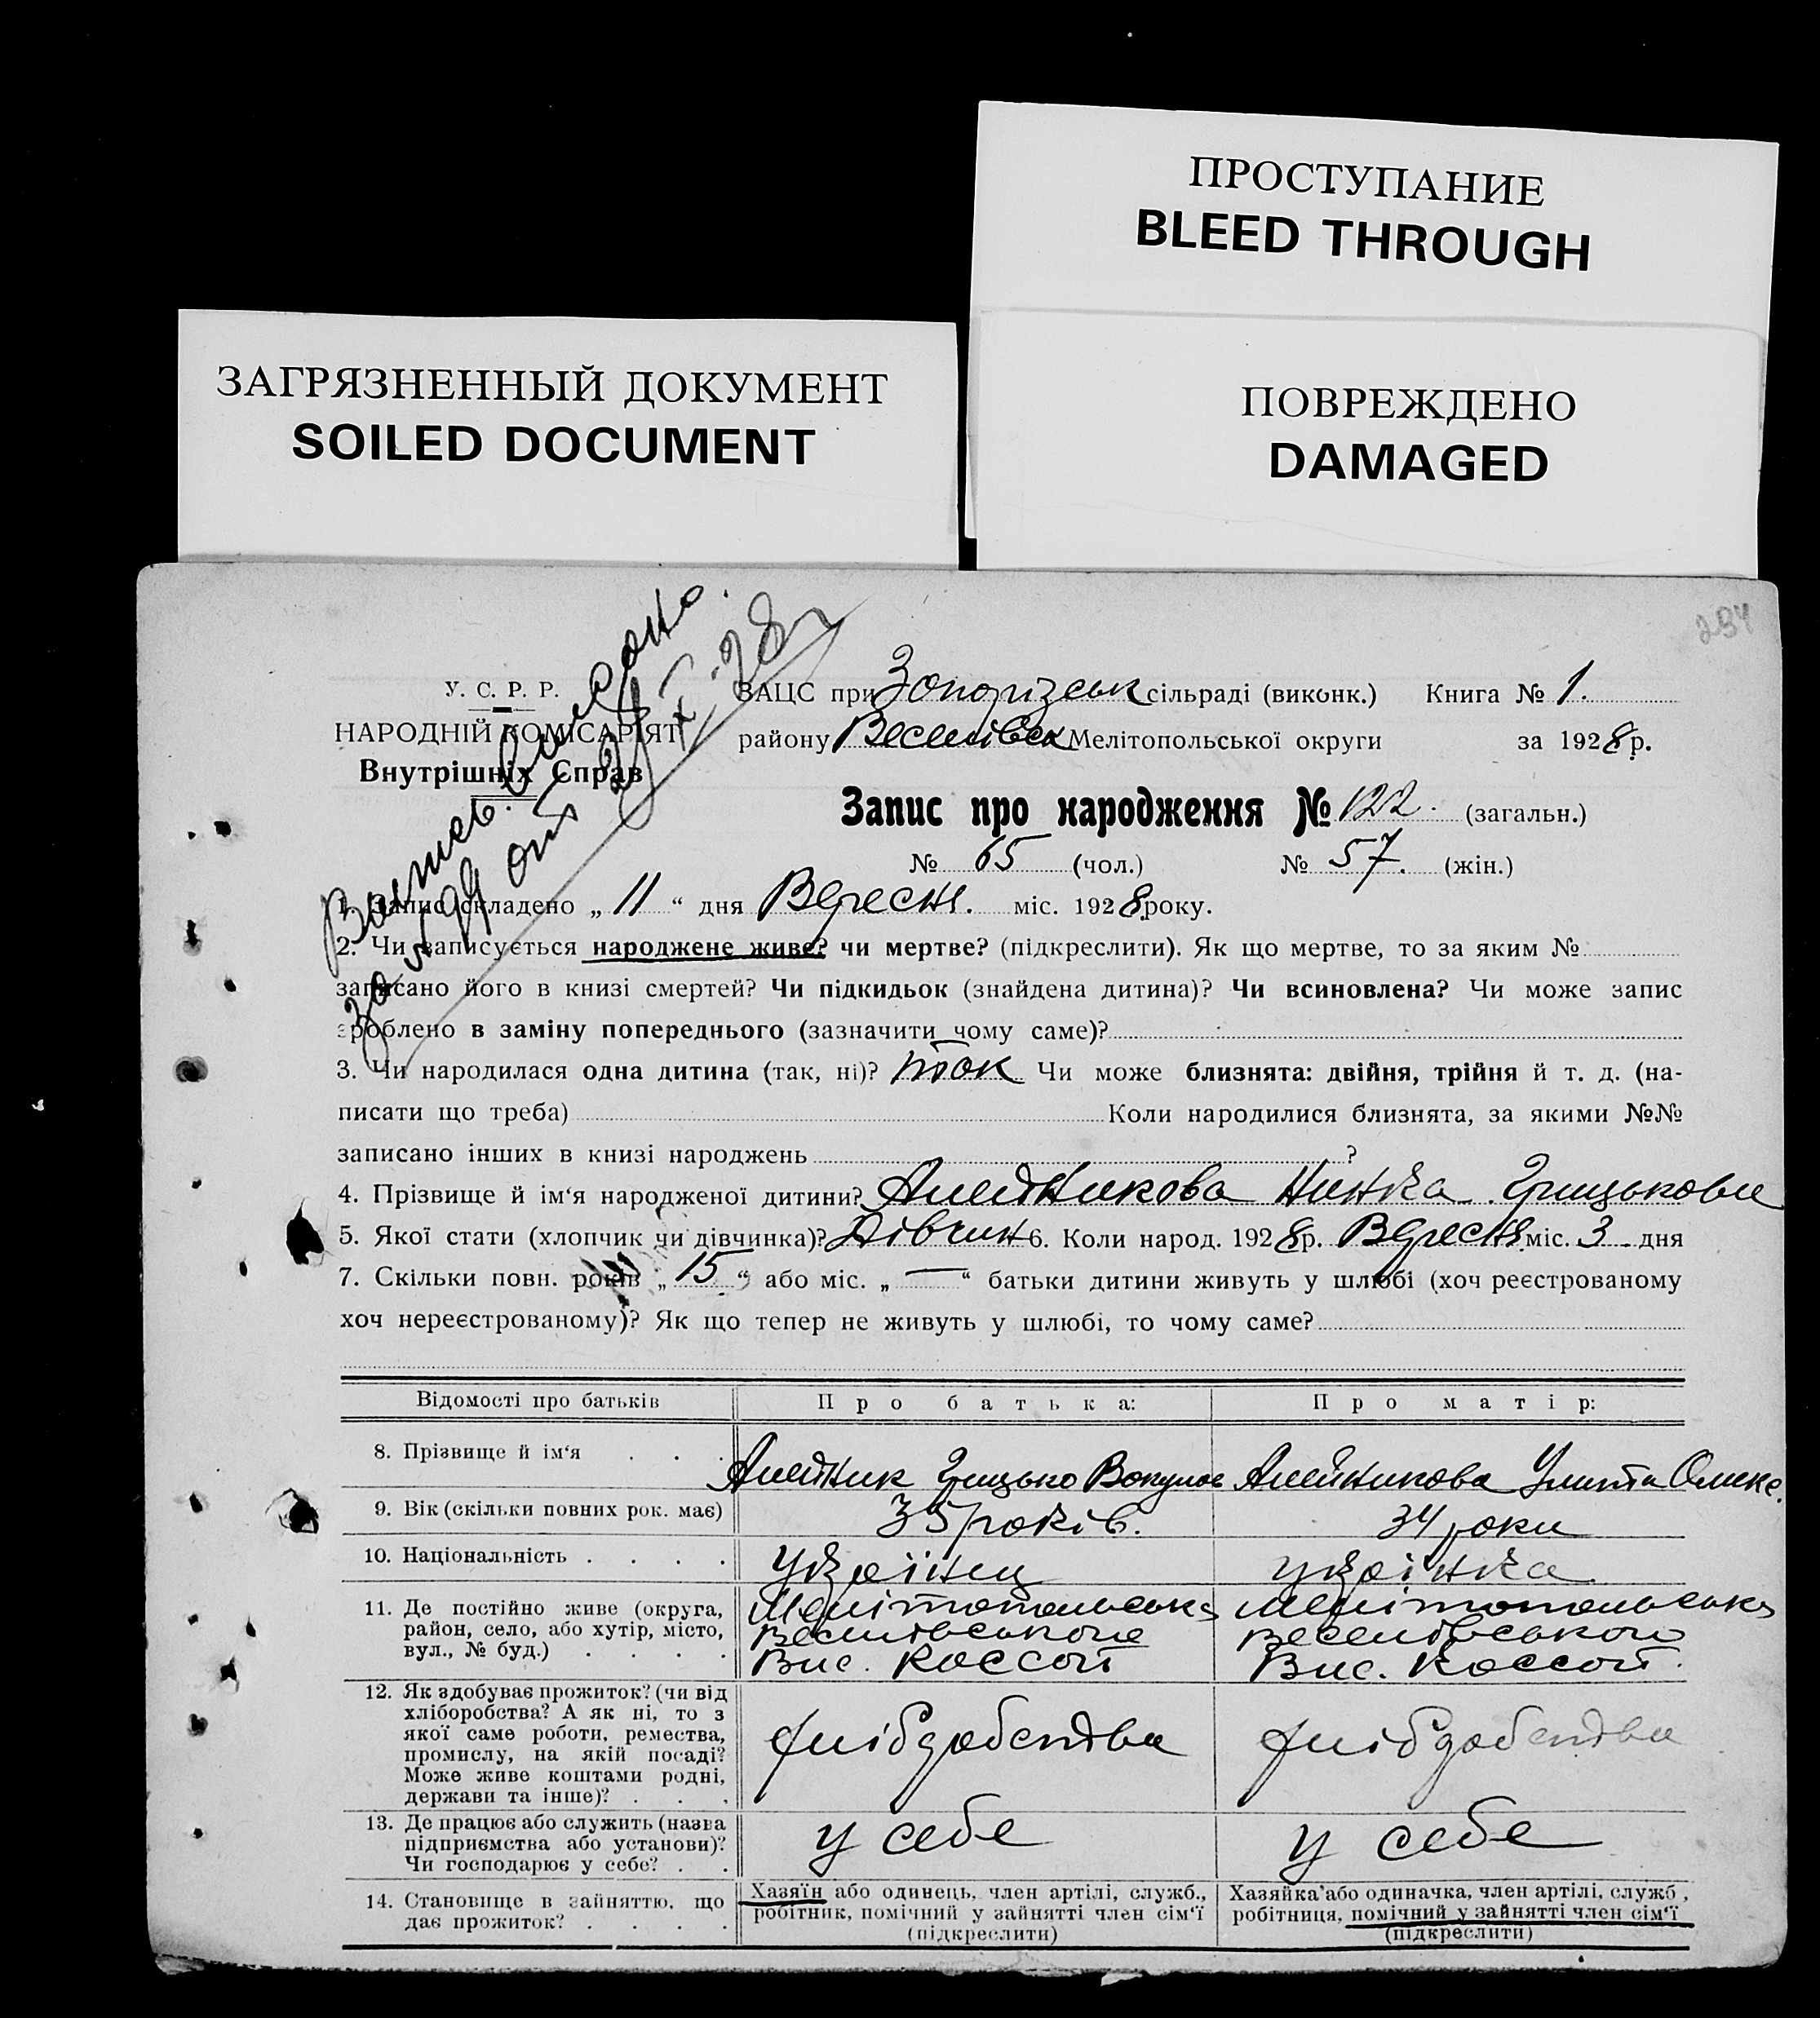 ПРОСТУПАНИЕ
BLEED THROUGH
ЗАГРЯЗНЕННЫЙ ДОКУМЕНТ
SOILED DOCUMENT
ПОВРЕЖДЕНО
DAMAGED
294
У. С. Р. Р.
НАРОДНІЙ КОМІСАРІЯТ
Внутрішніх Справ
ЗАЦС при Запорізськ сільраді (виконк.) Книга № 1.
району Веселівськ Мелітопольської округи за 1928 р.
Запис про народження № 122. (загальн.)
№ 65 (чол.) № 57. (жін.)
1. Запис складено „ 11 “ дня Вересня. міс. 1928 року.
2. Чи записується народжене живе? чи мертве? (підкреслити). Як що мертве, то за яким №
записано його в книзі смертей? Чи підкидьок (знайдена дитина)? Чи всиновлена? Чи може запис
зроблено в заміну попереднього (зазначити чому саме)?
3. Чи народилася одна дитина (так, ні)? так Чи може близнята: двійня, трійня й т. д. (на-
писати що треба) Коли народилися близнята, за якими №№
записано інших в книзі народжень ?
4. Прізвище й ім‘я народженої дитини? Алейникова Нинка Грицькова
5. Якої стати (хлопчик чи дівчинка)? Дівчин 6. Коли народ. 1928 р. Вересня міс. 3 дня
7. Скільки повн. років „ 15 “ або міс. „ — “ батьки дитини живуть у шлюбі (хоч реєстрованому
хоч нереєстрованому)? Як що тепер не живуть у шлюбі, то чому саме?
Відомості про батьків Про батька: Про матір:
8. Прізвище й ім‘я . . . Алейник Грицько Вакулов Алейникова Улита Олике.
9. Вік (скільки повних рок. має) 35 років. 34 роки
10. Національність . . . . Українец українка
11. Де постійно живе (округа, район, село, або хутір, місто, вул., № буд.) . . . .
Мелітопольська
Веселівського
Вис. Коссой
Мелітопольська
Веселівського
Вис. Коссой.
12. Як здобуває прожиток? (чи від хліборобства? А як ні, то з якої саме роботи, ремества, промислу, на якій посаді? Може живе коштами родні, держави та інше)? . . .
хлібробства хлібробства
13. Де працює або служить (назва підприємства або установи)? Чи господарює у себе? . .
у себе у себе
14. Становище в зайняттю, що дає прожиток? . . . .
Хазяїн або одинець, член артілі, служб.,
робітник, помічний у зайнятті член сім‘ї
(підкреслити)
Хазяйка або одиначка, член артілі, служб,
робітниця, помічний у зайнятті член сім‘ї
(підкреслити)